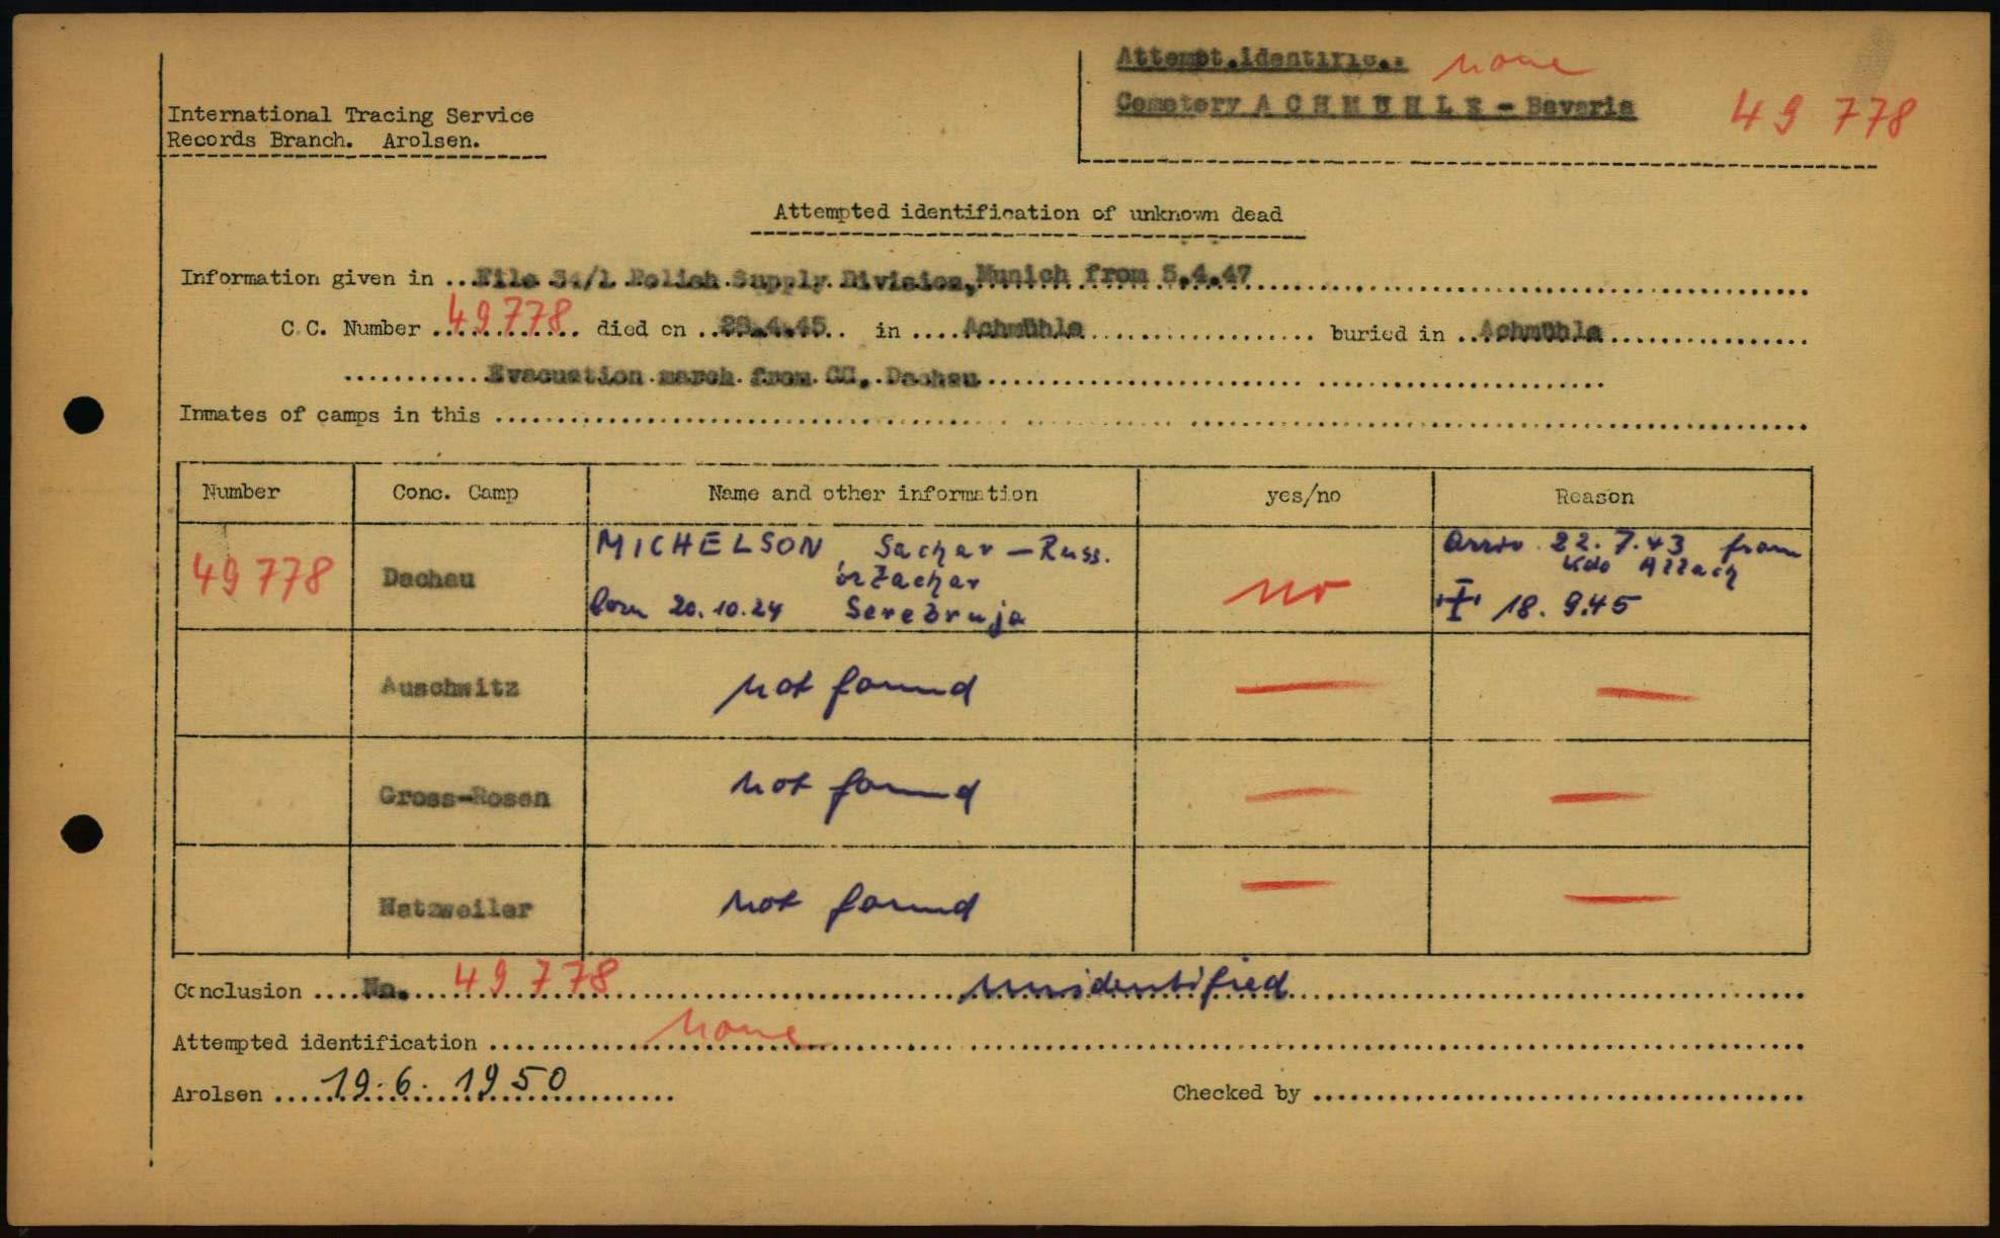 Attempt.identific.: none
Cemetery A C H M Ü H L E - Bavaria 49 778
International Tracing Service
Records Branch. Arolsen.
Attempted identification of unknown dead
Information given in .. File 34/1 Polish Supply Division, Munich from 5.4.47
C.C. Number 49778 died on .. .4.45 .. in .... Achmühle buried in .. Achmühle
Evacuation march from CC. Dachau
Inmates of camps in this
Number Conc. Camp Name and other information yes/no Reason
49778 Dachau MICHELSON Sachar - Russ. no arriv. 22.7.43 from
or Zachar Kdo Allach
born 20.10.24 Serebruja 18.9.45
Auschwitz not found — —
Gross-Rosen not found — —
Natzweiler not found — —
Conclusion .... No. 49 778 unidentified
Attempted identification none
Arolsen 19.6.1950 Checked by